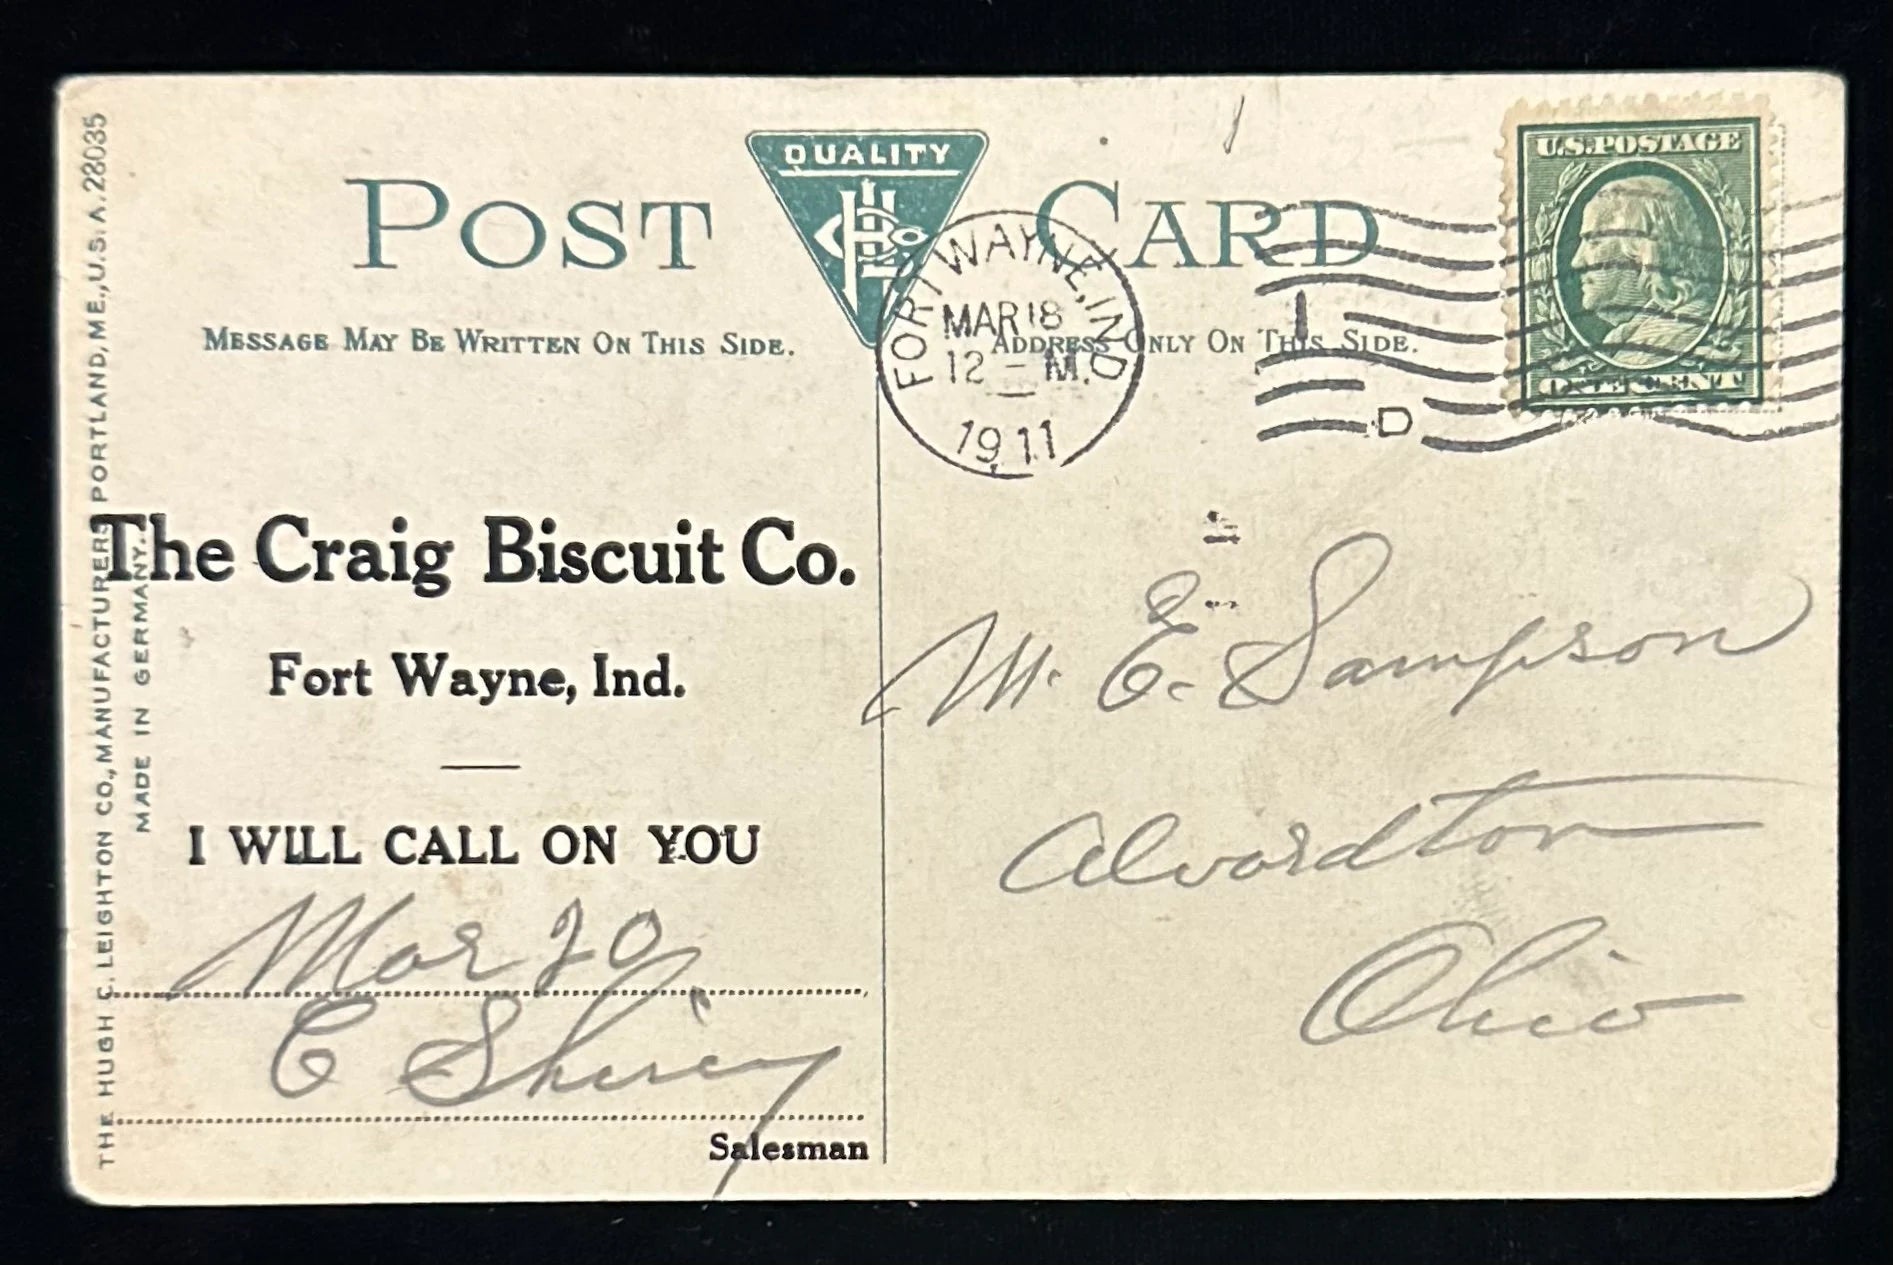 THE HUGH C. LEIGHTON CO., MANUFACTURERS PORTLAND, ME., U.S.A. 28035
MADE IN GERMANY.
POST CARD
QUALITY
MESSAGE MAY BE WRITTEN ON THIS SIDE.
ADDRESS ONLY ON THIS SIDE.
U.S.POSTAGE
ONE CENT
FORT WAYNE, IND
MAR 18
12 - M.
1911
1
D
The Craig Biscuit Co.
Fort Wayne, Ind.
I WILL CALL ON YOU
Mar 20
C Shirey
Salesman
M. E. Sampson
Alvordton
Ohio